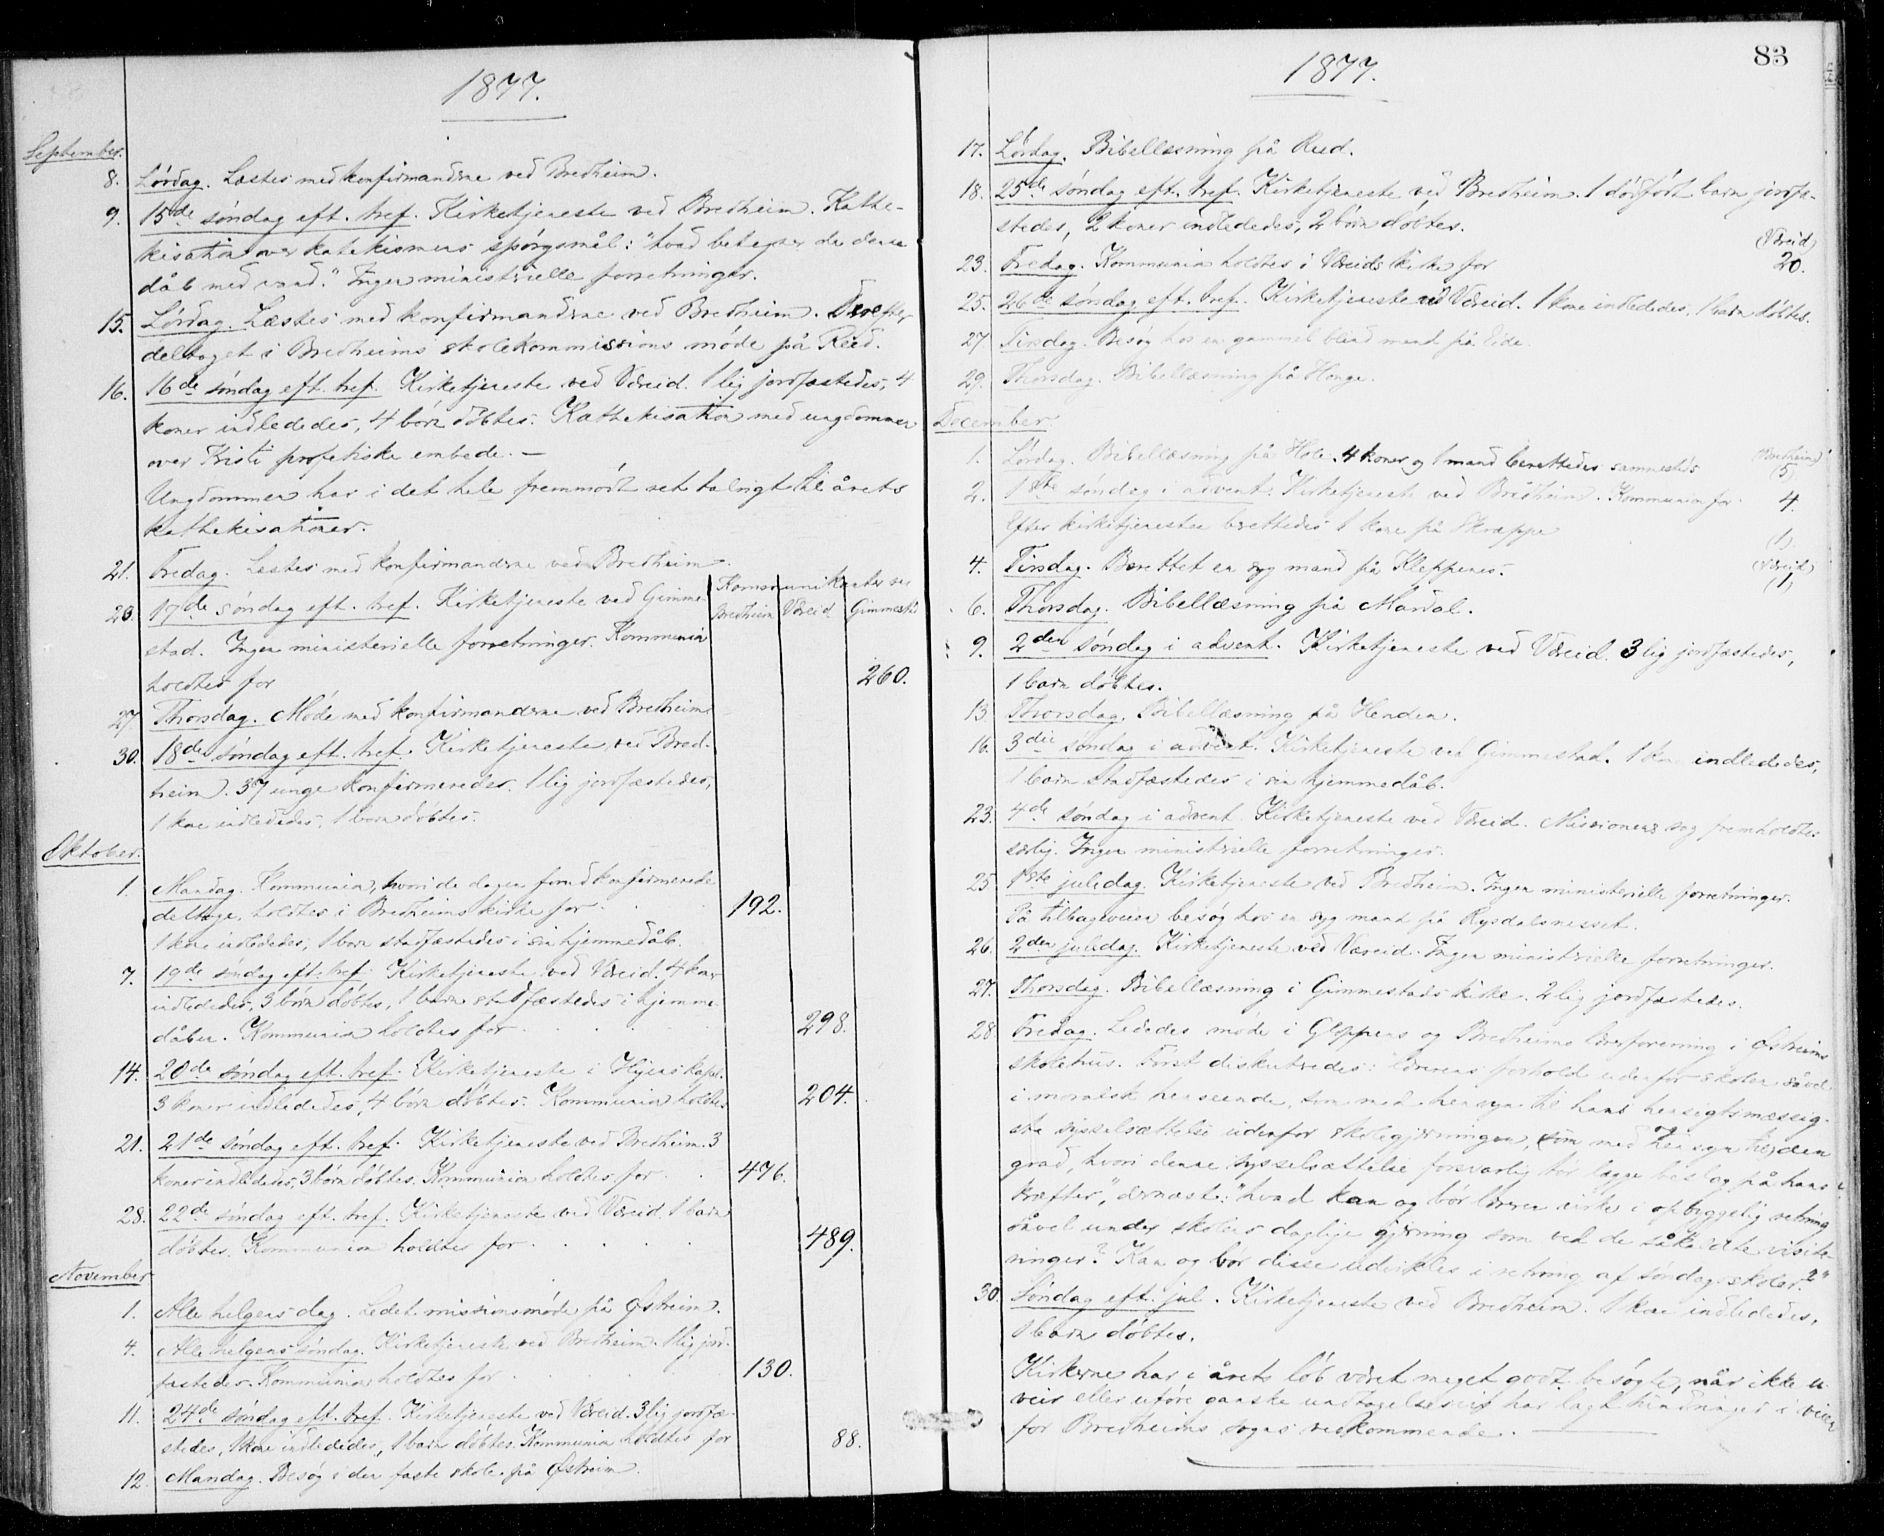 1877.
September.
8. Lørdag. Læstes med konfirmanderne ved Bredheim.
9. 15de søndag eft. tref. Kirketjeneste ved Bredheim. Kathe-
kisation over katekismens spørgsmål: "hvad betegner da denne
dåb med vand." Ingen ministerielle forretninger.
15. Lørdag. Læstes med konfirmanderne ved Bredheim. Derefter
deltaget i Bredheims skolekommissions møde på Reed.
16. 16de søndag eft. tref. Kirketjeneste ved Vereid. 1 lig jordfæstedes, 4
koner indlededes, 4 børn døbtes. Kathekisation med ungdommen
over Kristi profetiske embede. —
Ungdommen har i det hele fremmødt ret talrigt til årets
kathekisationer.
21. Fredag. Læstes med konfirmanderne ved Bredheim.
Kommunikanter ved
Bredheim Vereid Gimmestad
23. 17de søndag eft. tref. Kirketjeneste ved Gimme-
stad. Ingen ministerielle forretninger. Kommunion
holdtes for 260.
27. Thorsdag. Møde med konfirmanderne ved Bredheim.
30. 18de søndag eft. tref. Kirketjeneste ved Bred-
heim. 37 unge konfirmeredes. 1 lig jordfæstedes,
1 kone indlededes, 1 barn døbtes.
Oktober.
1. Mandag. Kommunion, hvori de dagen forud konfirmerede
deltoge, holdtes i Bredheims kirke for 192.
1 kone indlededes, 1 barn stadfæstedes i sin hjemmedåb.
7. 19de søndag eft. tref. Kirketjeneste ved Vereid. 4 koner
indlededes, 3 børn døbtes, 1 barn stadfæstedes i hjemme-
dåben. Kommunion holdtes for 298.
14. 20de søndag eft. tref. Kirketjeneste i Hyens kapel.
3 koner indlededes, 4 børn døbtes. Kommunion holdtes 204.
21. 21de søndag eft. tref. Kirketjeneste ved Bredheim. 3
koner indlededes, 3 børn døbtes. Kommunion holdtes for 476.
28. 22de søndag eft. tref. Kirketjeneste ved Vereid. 1 barn
døbtes. Kommunion holdtes for 489.
November
1. Alle helgens dag. Ledet missionsmøde på Østreim.
4. Alle helgens søndag. Kirketjeneste ved Bredheim. 1 lig jord-
fæstedes. Kommunion holdtes for 130.
11. 24de søndag eft. tref. Kirketjeneste ved Vereid. 3 lig jordfæ-
stedes, 1 kone indlededes, 1 barn døbtes. Kommunion holdtes for 88.
12. Mandag. Besøg i den faste skole på Østreim.
83
1877.
17. Lørdag. Bibellæsning på Reed.
18. 25de søndag eft. tref. Kirketjeneste ved Bredheim. 1 dødfødt barn jordfæ-
stedes, 2 koner indlededes, 2 børn døbtes.
(Vereid)
23. Fredag. Kommunion holdtes i Vereids kirke for 20.
25. 26de søndag eft. tref. Kirketjeneste ved Vereid. 1 kone indlededes, 1 barn døbtes.
27 Tirsdag. Besøg hos en gammel blind mand på Eide.
29. Thorsdag. Bibellæsning på Honge.
December.
1. Lørdag. Bibellæsning på Hole. 4 koner og 1 mand berettedes sammesteds (Bredheim) (5)
2. 1ste søndag i advent. Kirketjeneste ved Bredheim. Kommunion for 4.
Efter kirketjenesten berettedes 1 kone på Skrappe (1).
4. Tirsdag. Berettet en syg mand på Kleppenes. (Vereid) (1)
6. Thorsdag. Bibellæsning på Mardal.
9. 2den søndag i advent. Kirketjeneste ved Vereid. 3 lig jordfæstedes,
1 barn døbtes.
13 Thorsdag. Bibellæsning på Henden.
16. 3die søndag i advent. Kirketjeneste ved Gimmestad. 1 kone indlededes,
1 barn stadfæstedes i sin hjemmedåb.
23. 4de søndag i advent. Kirketjeneste ved Vereid. Missionens sag fremholdtes
særlig. Ingen ministerielle forretninger.
25. 1ste juledag. Kirketjeneste ved Bredheim. Ingen ministerielle forretninger.
På tilbageveien besøg hos en syg mand på Rysdalsnesset.
26. 2den juledag. Kirketjeneste ved Vereid. Ingen ministerielle forretninger.
27. Thorsdag. Bibellæsning i Gimmestads kirke. 2 lig jordfæstedes.
28. Fredag. Lededes møde i Gloppens og Bredheims lærerforening i Østreims
skolehus. Først diskuteredes: "lærerens forhold udenfor skolen såvel
i moralsk henseende, som med hensyn til hans hensigtsmæssig-
ste sysselsættelse udenfor skolegjerningen, som med hensyn til den
grad, hvori denne sysselsættelse forsvarlig bør lægge beslag på hans
kræfter," dernæst: "hvad kan og bør læreren virke i opbyggelig retning
såvel under skolens daglige gjerning som ved de såkaldte visite-
ringer? Kan og bør disse udvikles i retning af søndagsskoler?"
30. Søndag eft. jul. Kirketjeneste ved Bredheim. 1 kone indlededes,
1 barn døbtes.
Kirkerne har i årets løb været meget godt besøgte, når ikke u-
veir eller uføre ganske undtagelsesvis har lagt hindringer i veien
for Bredheims sogns vedkommende.